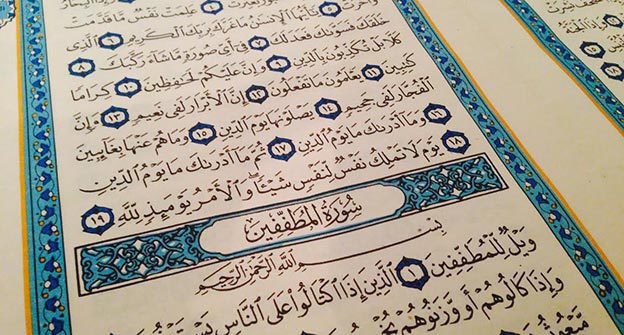 عَلِمَتْ نَفْسٌ مَّا قَدَّمَتْ
وَأَخَّرَتْ ٥ يَٰٓأَيُّهَا ٱلْإِنسَٰنُ مَا غَرَّكَ بِرَبِّكَ ٱلْكَرِيمِ ٦ ٱلَّذِى
خَلَقَكَ فَسَوَّىٰكَ فَعَدَلَكَ ٧ فِىٓ أَىِّ صُورَةٍ مَّا شَآءَ رَكَّبَكَ ٨
كَلَّا بَلْ تُكَذِّبُونَ بِٱلدِّينِ ٩ وَإِنَّ عَلَيْكُمْ لَحَٰفِظِينَ ١٠ كِرَامًا
كَٰتِبِينَ ١١ يَعْلَمُونَ مَا تَفْعَلُونَ ١٢ إِنَّ ٱلْأَبْرَارَ لَفِى نَعِيمٍ ١٣ وَإِنَّ
ٱلْفُجَّارَ لَفِى جَحِيمٍ ١٤ يَصْلَوْنَهَا يَوْمَ ٱلدِّينِ ١٥ وَمَا هُمْ عَنْهَا بِغَآئِبِينَ
١٦ وَمَآ أَدْرَىٰكَ مَا يَوْمُ ٱلدِّينِ ١٧ ثُمَّ مَآ أَدْرَىٰكَ مَا يَوْمُ ٱلدِّينِ
١٨ يَوْمَ لَا تَمْلِكُ نَفْسٌ لِّنَفْسٍ شَيْـًٔا وَٱلْأَمْرُ يَوْمَئِذٍ لِّلَّهِ ١٩
سُورَةُ الْمُطَفِّفِينَ
بِسْمِ ٱللَّهِ ٱلرَّحْمَٰنِ ٱلرَّحِيمِ
وَيْلٌ لِّلْمُطَفِّفِينَ ١ ٱلَّذِينَ إِذَا ٱكْتَالُوا۟ عَلَى ٱلنَّاسِ
وَإِذَا كَالُوهُمْ أَو وَّزَنُوهُمْ